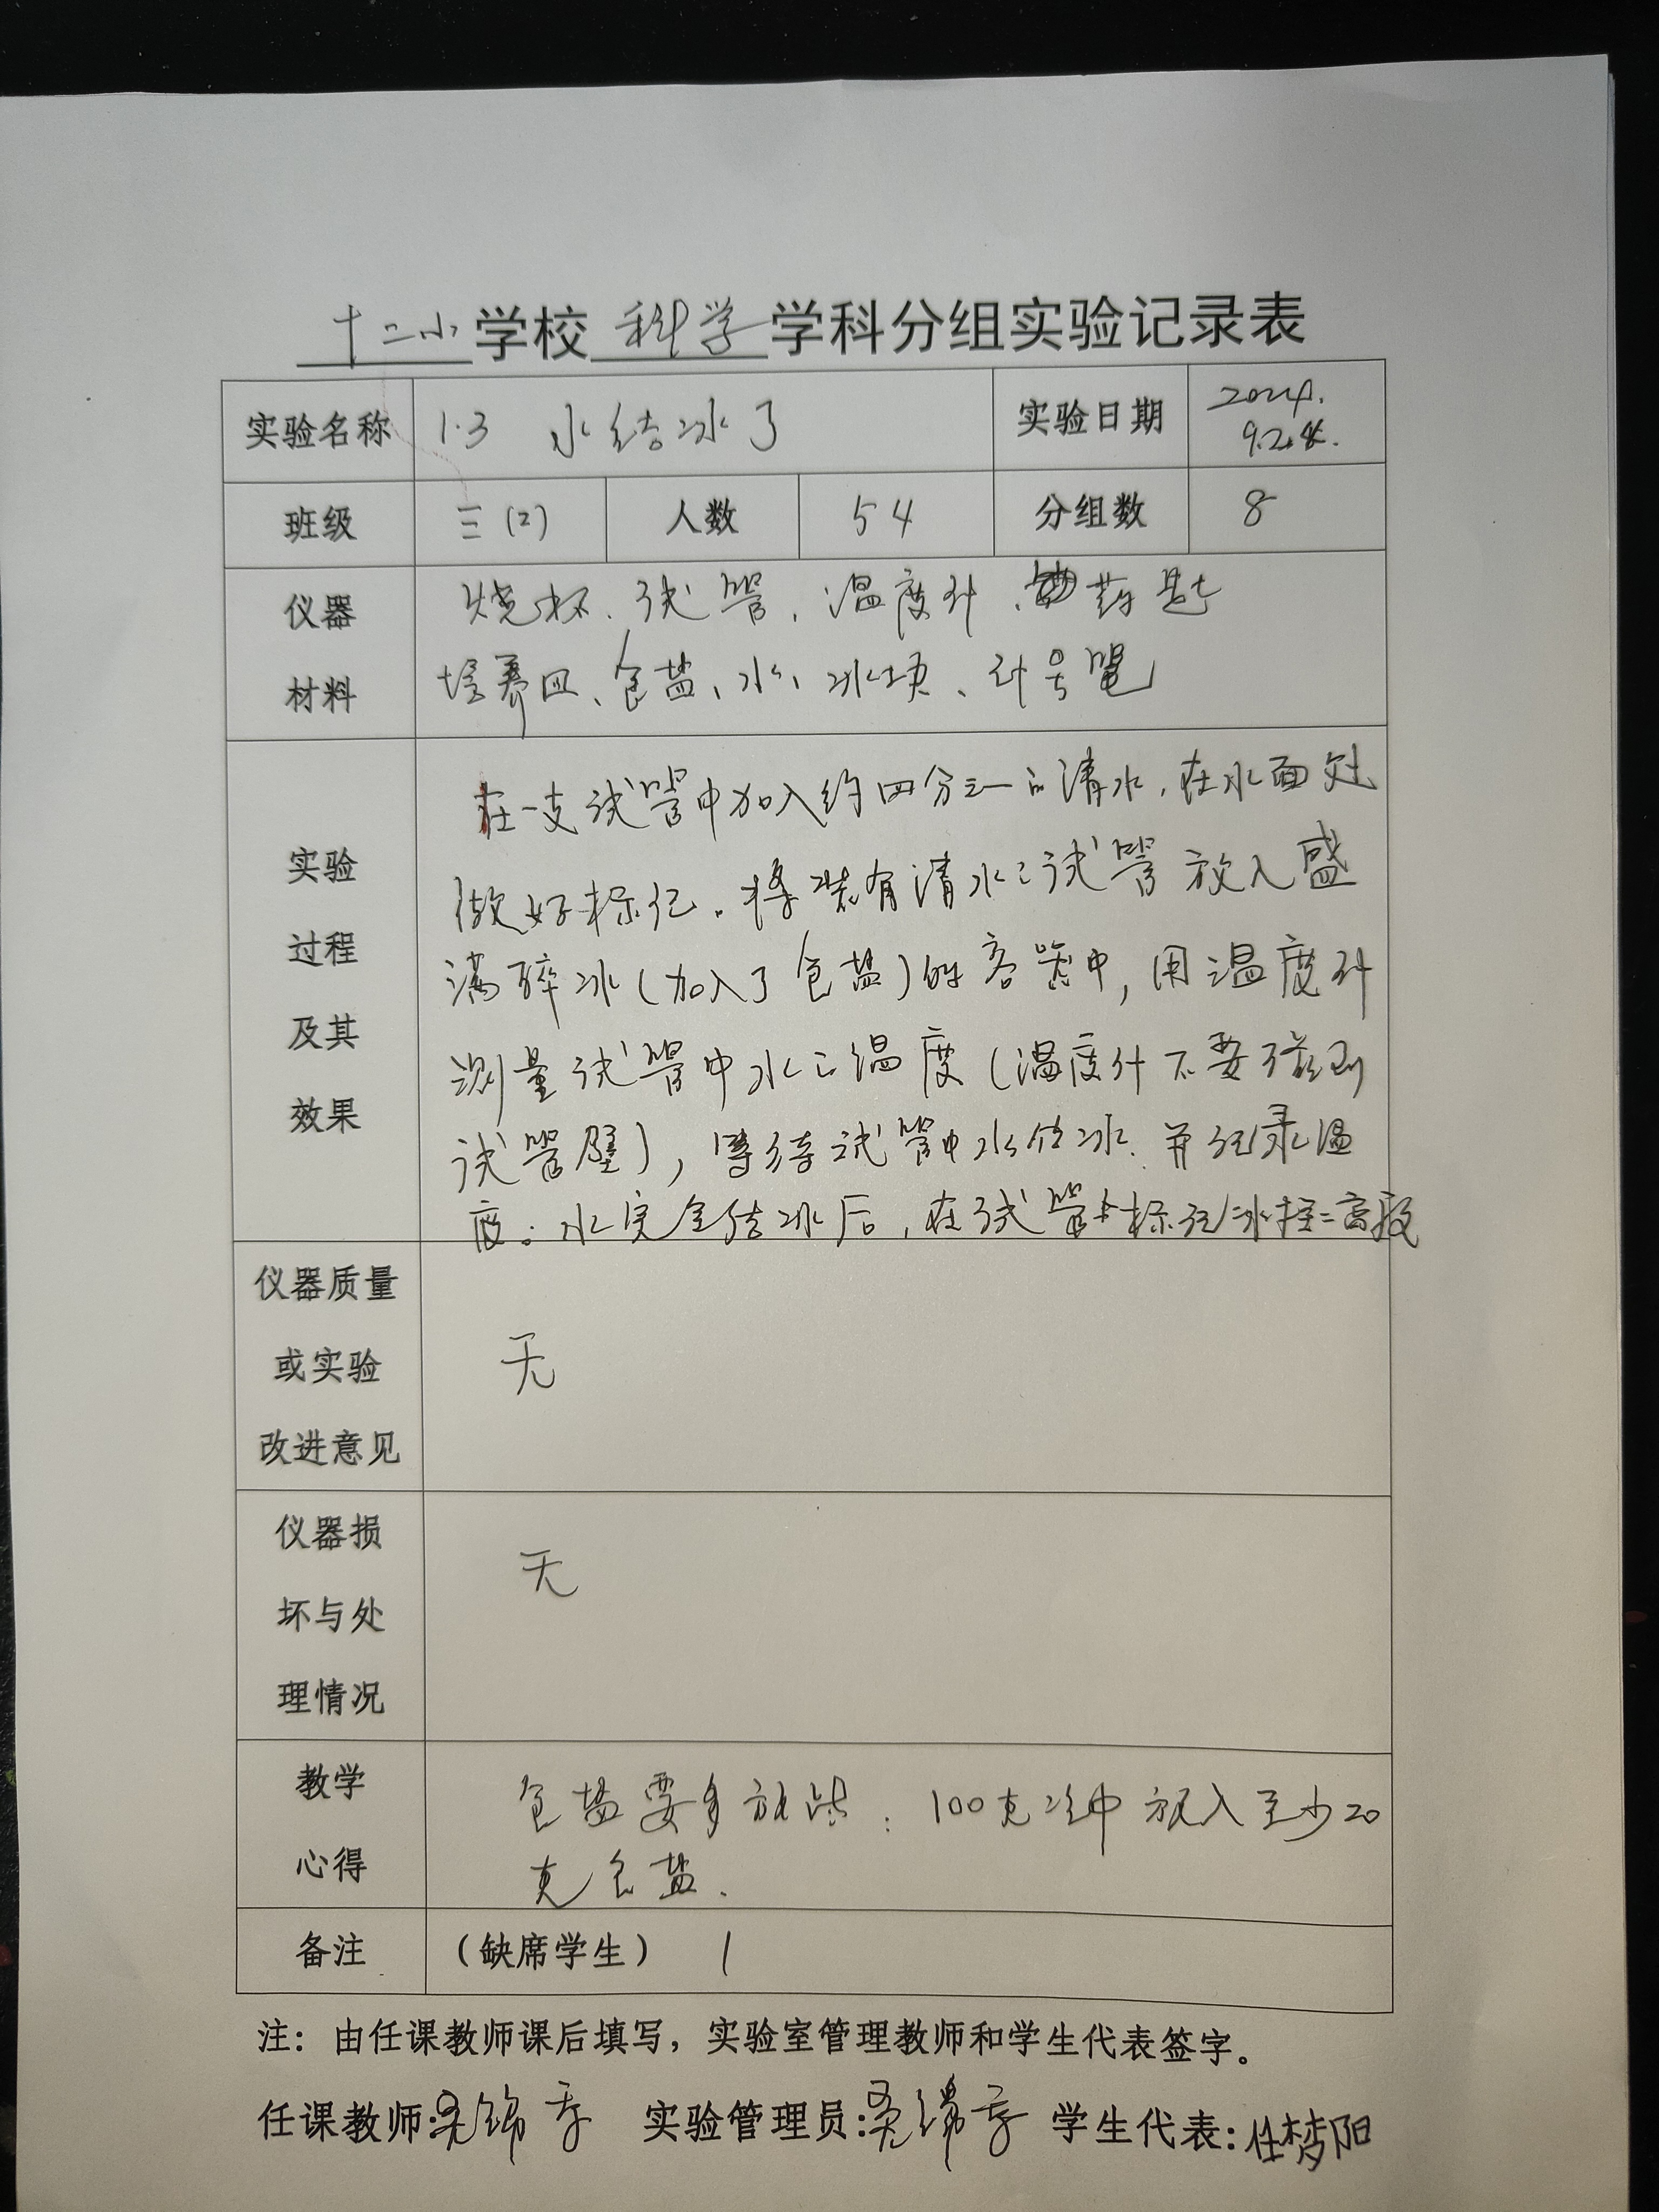 十二小学校科学学科分组实验记录表
实验名称 1.3 水结冰了 实验日期 2024.
9.2
班级 三(2) 人数 54 分组数 8
仪器 烧杯、试管、温度计、药匙
材料 培养皿、食盐、水、冰块、计号笔
在一支试管中加入约四分之一的清水,在水面处
实验 做好标记。将装有清水的试管放入盛
过程 满碎冰(加入了食盐)的容器中,用温度计
及其 测量试管中水的温度(温度计不要碰到
效果 试管壁),等待试管中水结冰.并记录温
度。水完全结冰后,在试管上标记冰柱的高度
仪器质量
或实验 无
改进意见
仪器损 无
坏与处
理情况
教学 食盐要多放些:100克冰中放入至少20
心得 克食盐.
备注 (缺席学生) /
注:由任课教师课后填写,实验室管理教师和学生代表签字。
任课教师: 实验管理员: 学生代表:任梦阳